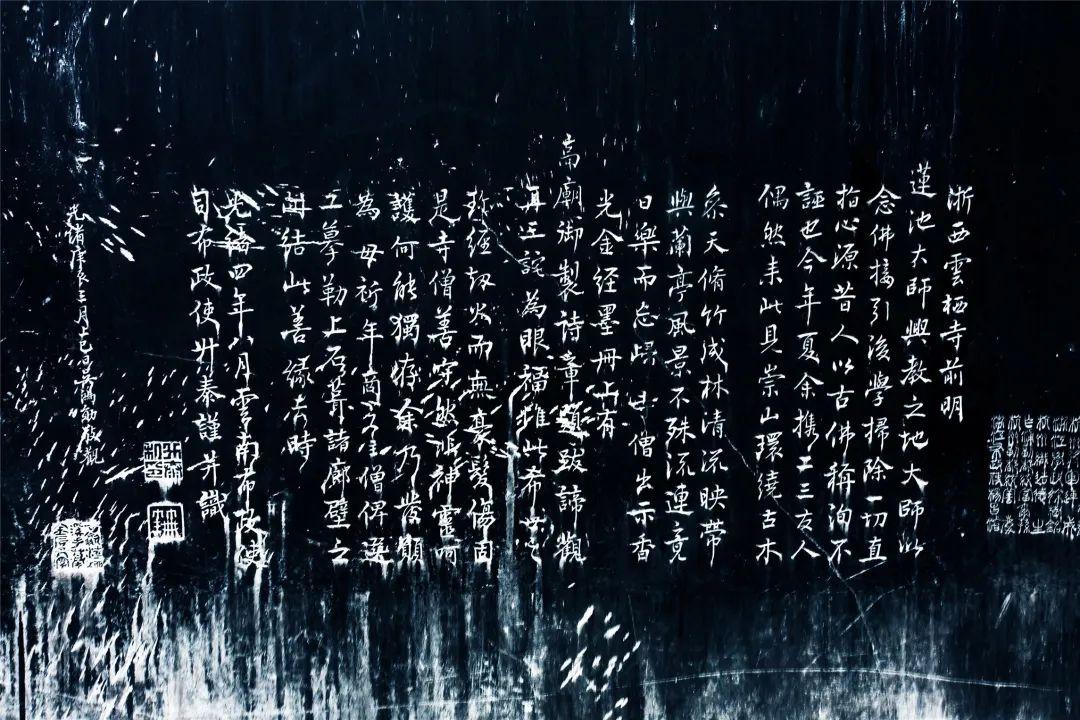 浙西雲栖寺前明
蓮池大師興教之地大師以
念佛接引後學掃除一切直
指心源昔人以古佛稱洵不
誣也今年夏余携二三友人
偶然来此見崇山環繞古木
条天脩竹成林清流映带
與蘭亭風景不殊流連竟
日樂而忘歸寺僧出示香
光金经墨冊上有
高廟御製詩章題跋諦觀
再三詫為眼福推此希世之
珍經刼火而無豪髮傷固
是寺僧善守然非神靈呵
護何能獨存余乃發願
為母祈年商之主僧俾選
工摹勒上石葺諸廊壁之
用結此善缘去時
光緒四年八月雲南布政使
自布政使升泰謹并識
光緒庚辰三月
敬觀